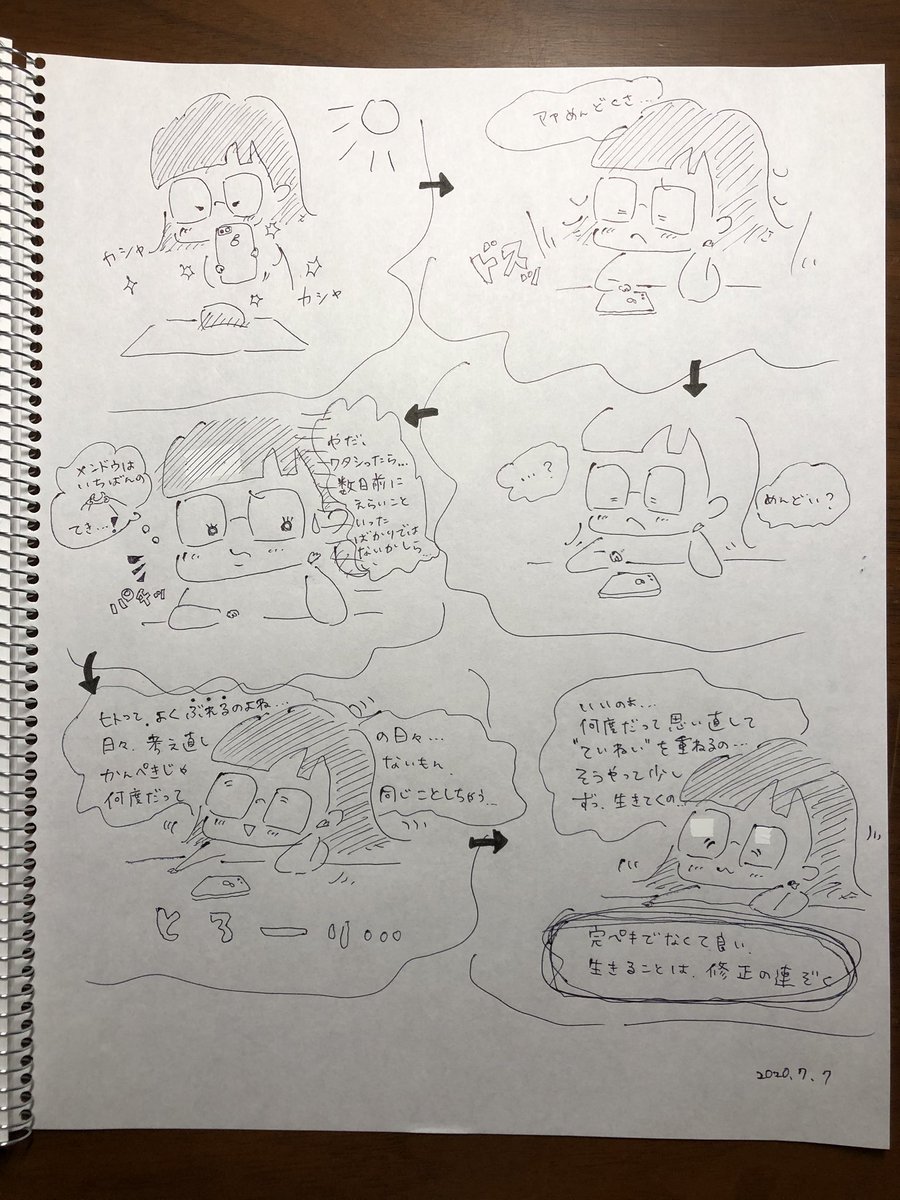 カシャ
カシャ
アァめんどくさ...
ドスッ
めんどい?
...?
やだ、
ワタシったら...
数日前に
えらいこと
いった
ばかりでは
ないかしら
メンドウは
いちばんの
てき...!
パチッ
ヒトって、よくぶれるのよね...
日々、考え直し
の日々...
かんぺきじゃ
ないもん、
何度だって
同じことしちゃう...
とろーり...
いいのよ...
何度だって思い直して
"ていねい"を重ねるの...
そうやって少し
ずつ、生きてくの...
完ペキでなくて良い、
生きることは、修正の連ぞく
2020.7.7